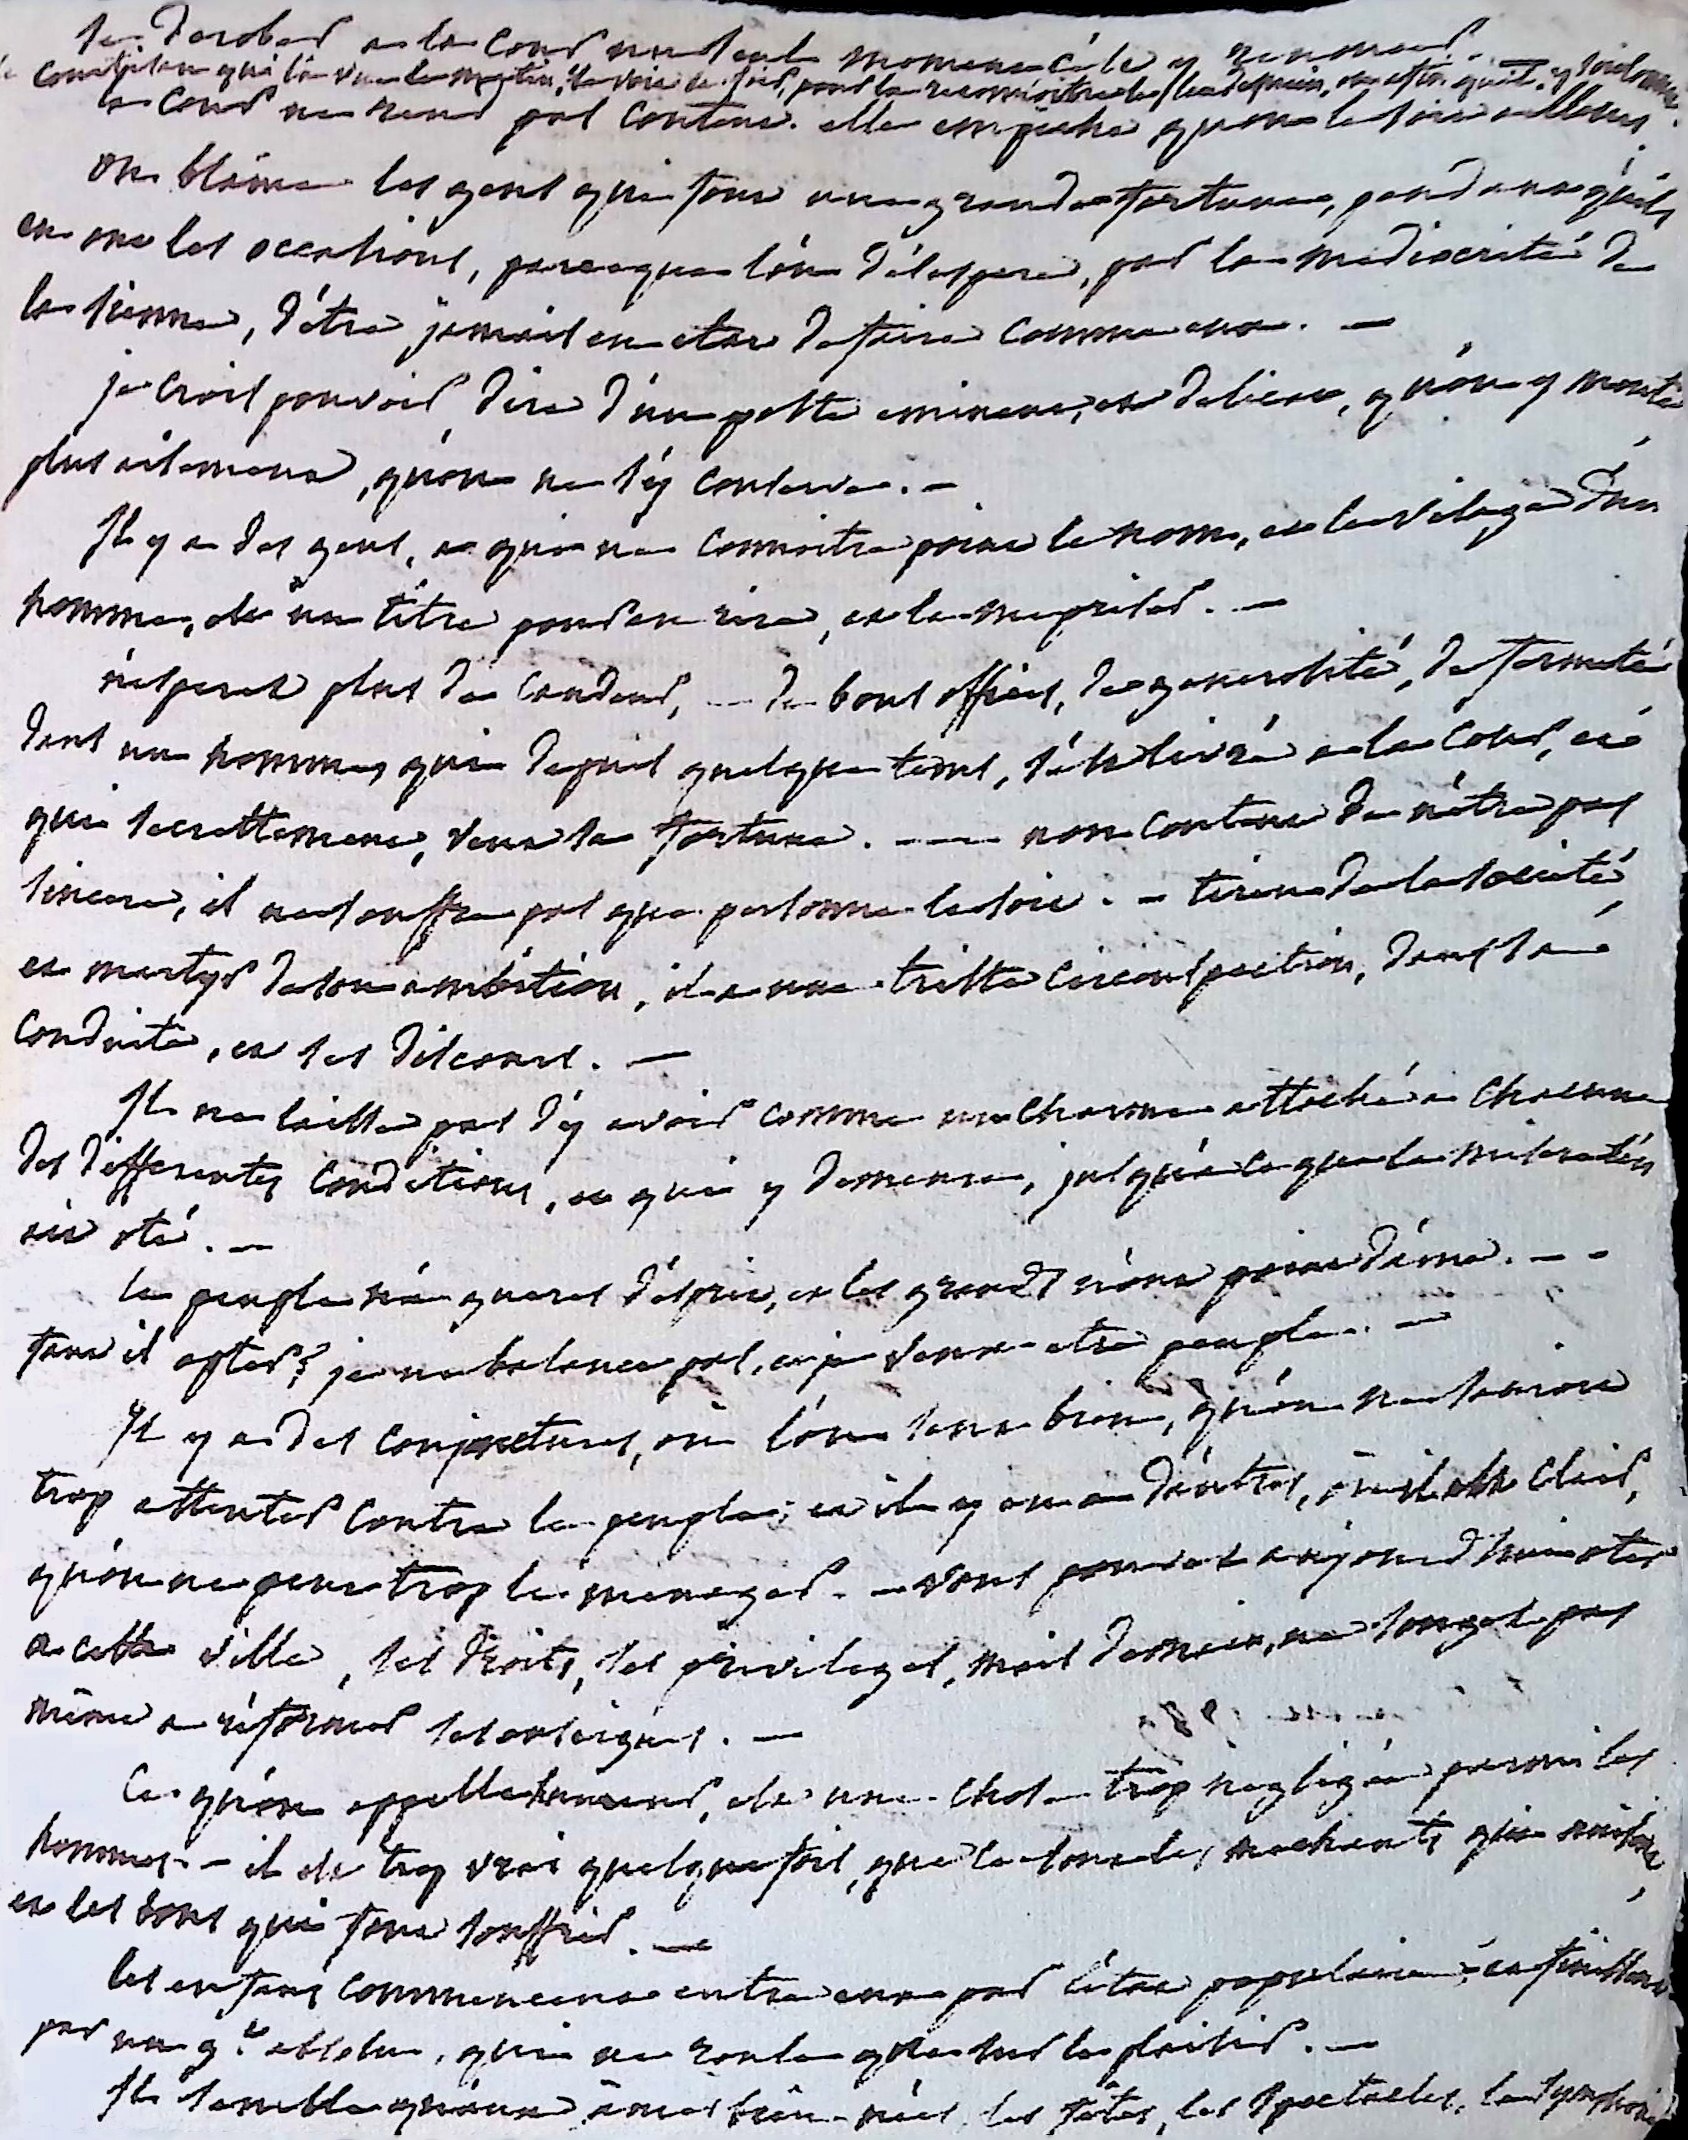 se derober a la cour un seul moment, c'est y renoncer.
le courtisan qui l'a vue le matin, la voit le soir, pour la reconnoitre le lendemain, ou afin qu'il y soit connu.
la cour ne rend pas content. elle empeche qu'on le soit ailleurs.
on blâme les gens qui font une grande fortune, pendant qu'ils
en ont les occasions, parceque l'on désespere, par la mediocrité de
la sienne, d'être jamais en etat de faire comme eux. —
je crois pouvoir dire d'un poste eminent, et delicat, qu'on y monte
plus aisement, qu'on ne s'y conserve. —
Il y a des gens, a qui ne connoitre point le nom, et le visage d'un
homme, est un titre pour en rire, et le mepriser. —
n'esperez plus de candeur, — de bons offices, de generosité, de fermeté
dans un homme, qui depuis quelque tems, s'est livré a la cour, et
qui secrettement, veut sa fortune. — non content de n'être pas
sincere, il ne souffre pas que personne le soit. — tiran de la société,
et martyr de son ambition, il a une triste circonspection, dans sa
conduite, et ses discours. —
Il ne laisse pas d'y avoir comme un charme attaché a chacune
des differentes conditions, et qui y demeure, jusqu'a ce que la misere l'en
ait oté. —
le peuple n'a gueres d'esprit, et les grands n'ont point d'ame. — —
faut il opter? je ne balance pas, et je veux etre peuple. —
Il y a des conjonctures, où l'on sent bien, qu'on ne sauroit
trop attenter contre le peuple; et il y en a d'autres, où il est clair,
qu'on ne peut trop le menager. — vous pouvez aujourd'hui oter
a cette ville, ses droits, ses privileges, mais demain, ne songez pas
même a réformer ses enseignes. —
Ce qu'on appelle humeur, est une chose trop negligée parmi les
hommes — il est trop vrai quelquefois, que ce sont les mechants qui nuisent,
et les bons qui font souffrir. —
les enfans commencent entre eux par l'état populaire, et finissent
par un g.t absolu, qui ne roule que sur le plaisir. —
Il semble qu'aux âmes bien nées les fêtes, les spectacles, la symphonie